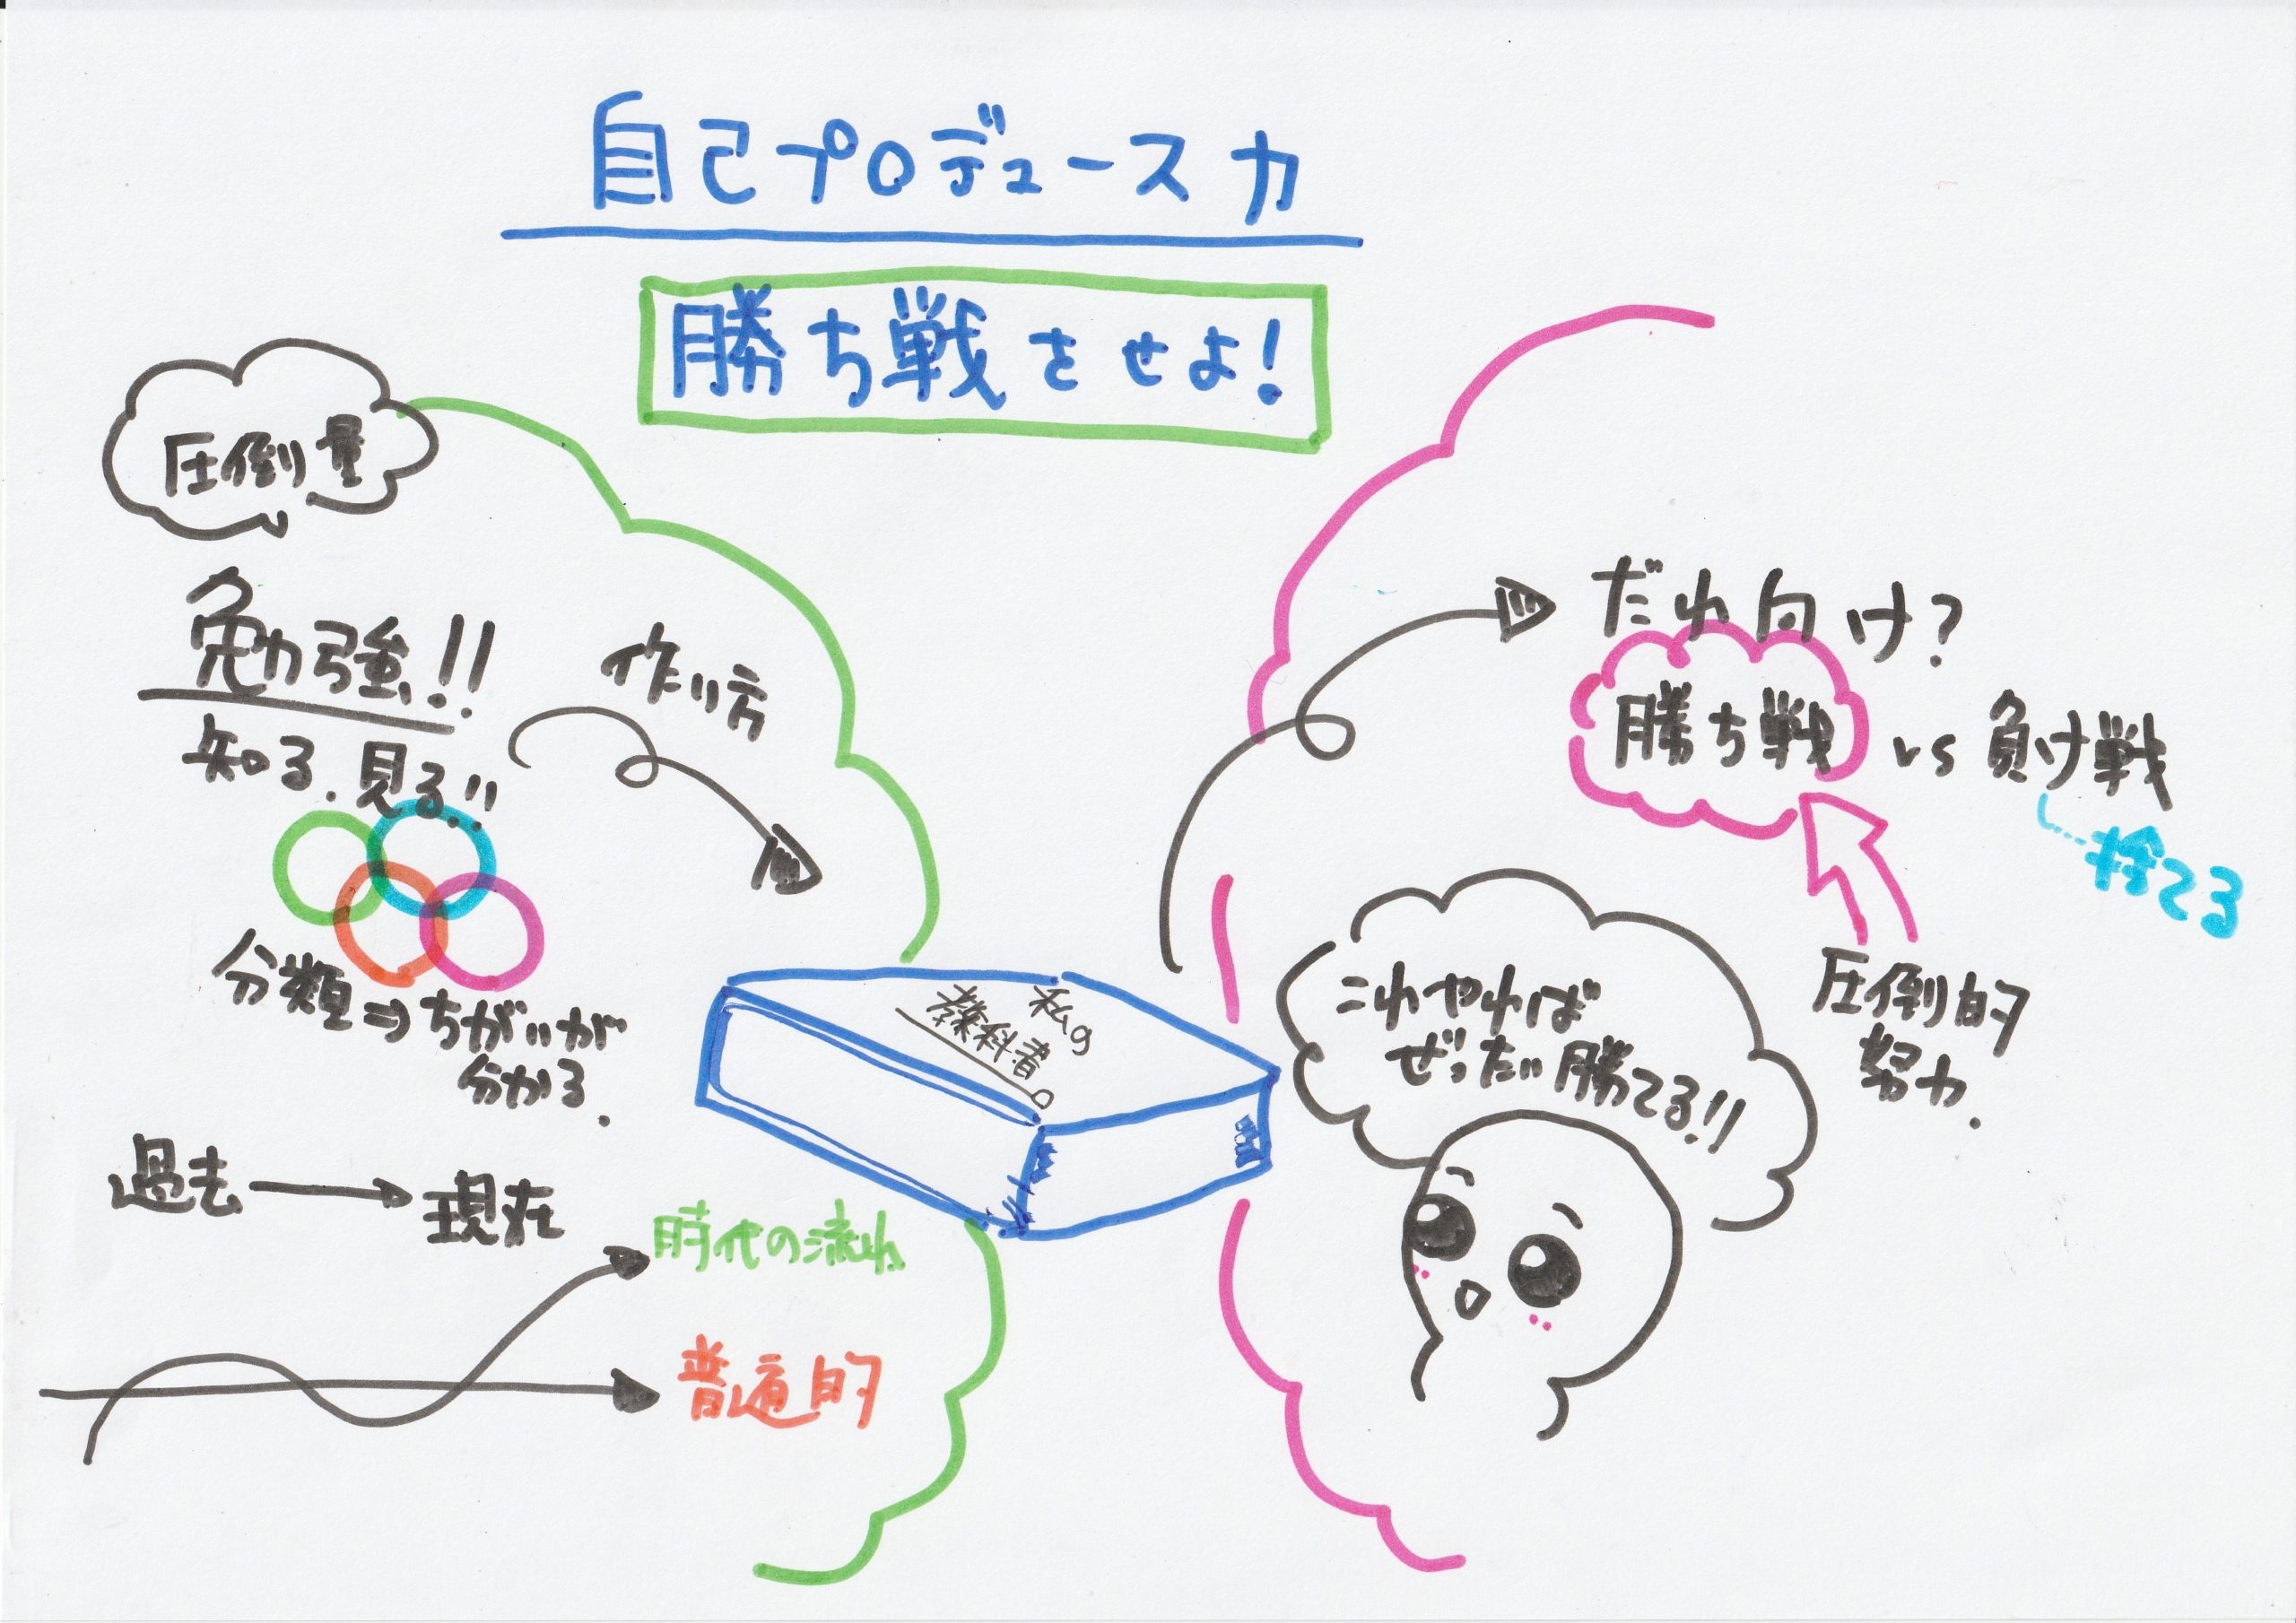 自己プロデュース力
勝ち戦をせよ!
圧倒量
勉強!!
知る.見る!!
作り方
分類⇒ちがいが
分かる.
過去→現在
時代の流れ
普遍的
私の
教科書。
だれ向け?
勝ち戦 vs 負け戦
捨てる
圧倒的
努力.
これやれば
ぜったい勝てる!!